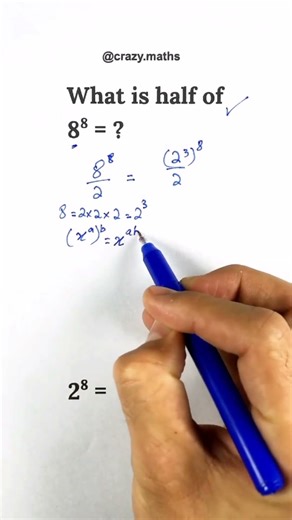 @crazy.maths
What is half of
8⁸ = ?
8⁸/2 = (2³)⁸/2
8 = 2 × 2 × 2 = 2³
(xᵃ)ᵇ = xᵃᵇ
2⁸ =